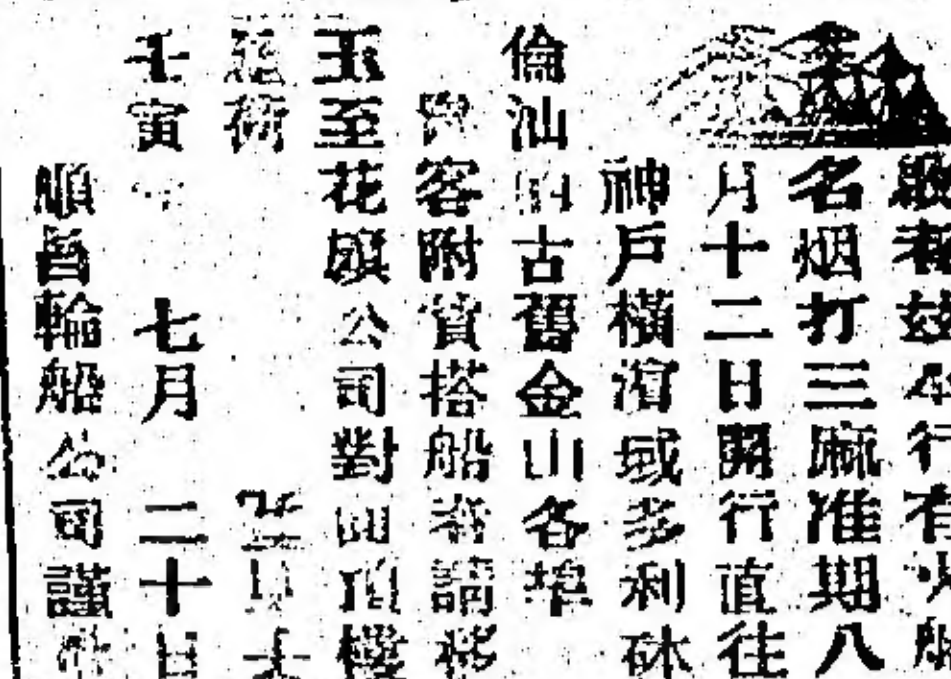 啟者茲本行有火船
名烟打三麻准期八
月十二日開行直往
神戶橫濱域多利砵
倫汕 古舊金山各埠
客附貨搭船者請移
玉至花旗公司對面頂樓
壬寅 七月二十日
順昌輪船公司謹